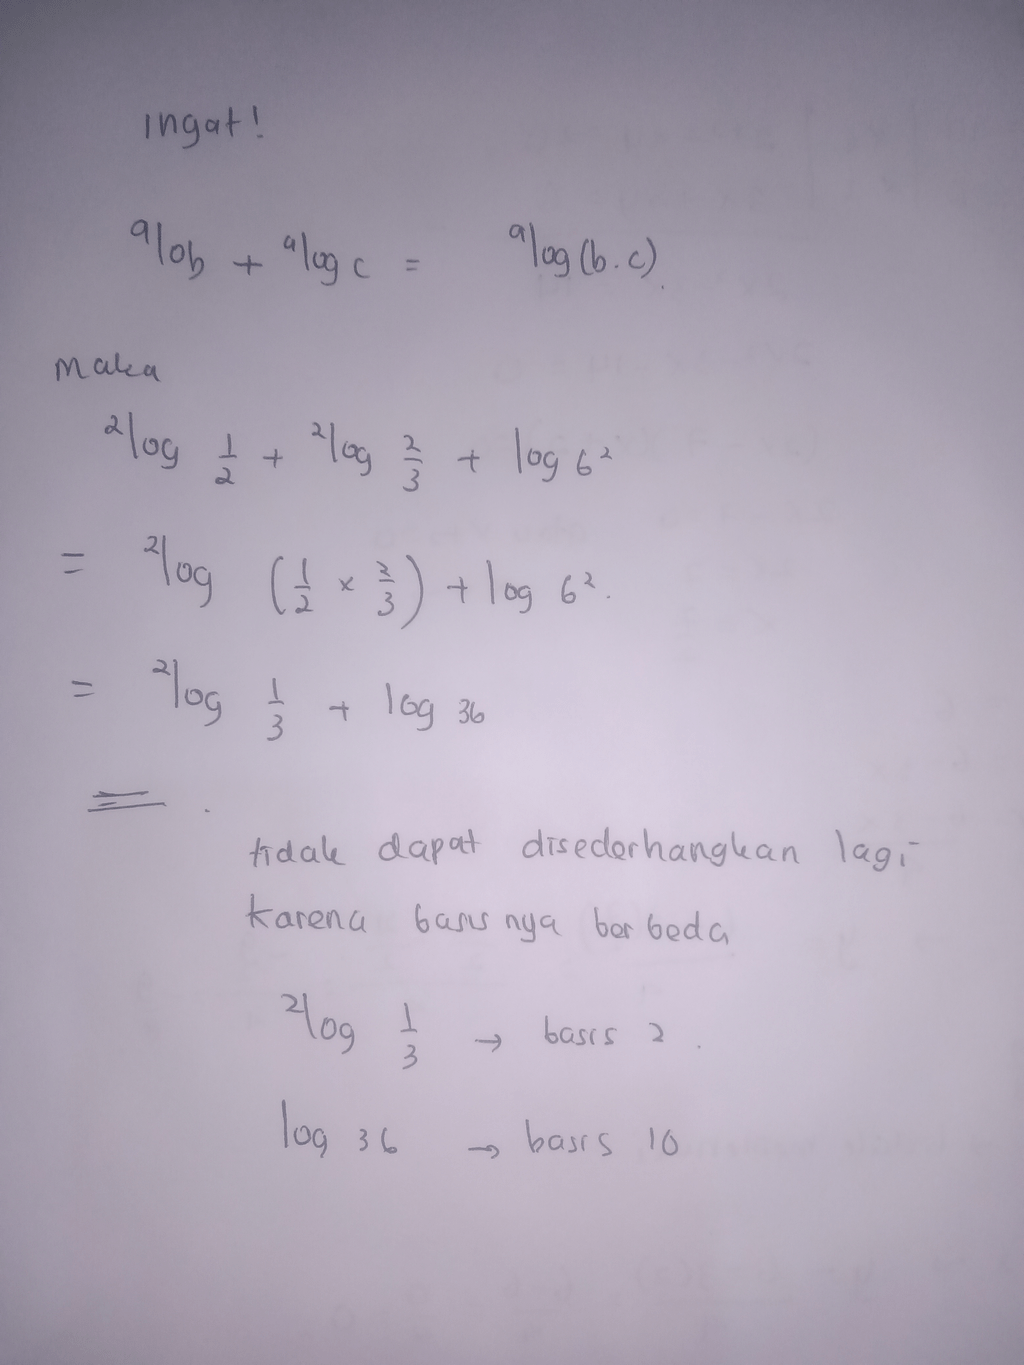 Ingat!
ᵃlob + ᵃlog c = ᵃlog (b.c).
Maka
²log 1/2 + ²log 2/3 + log 6²
= ²log (1/2 × 2/3) + log 6².
= ²log 1/3 + log 36
tidak dapat disederhangkan lagi
karena basisnya berbeda
²log 1/3 → basis 2.
log 36 → basis 10